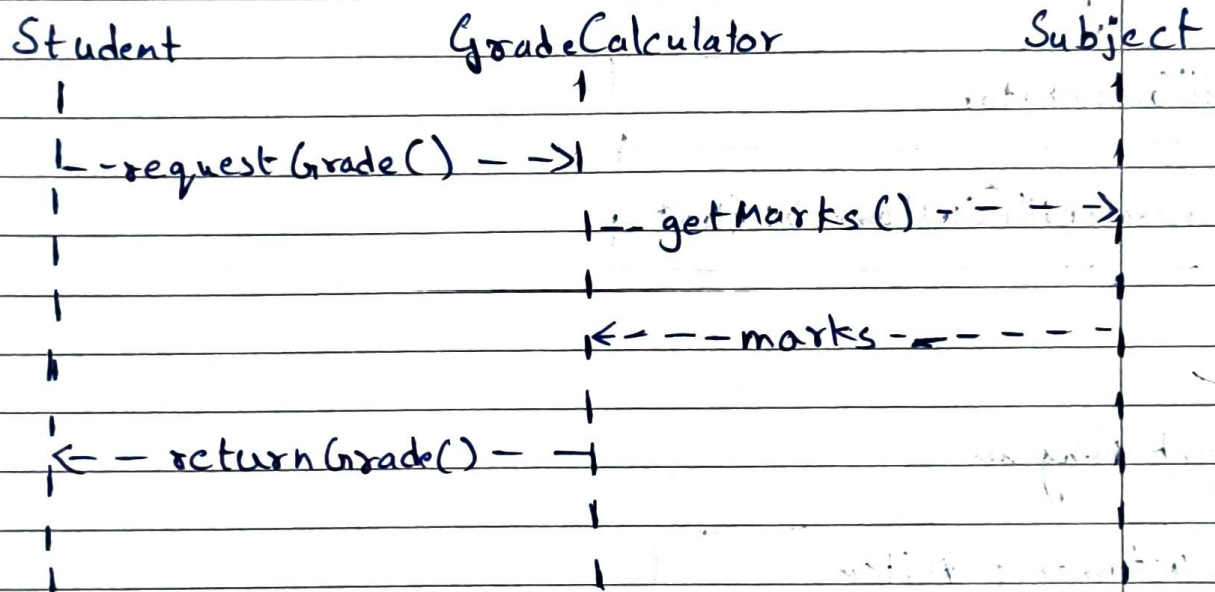 Student GradeCalculator Subject
requestGrade()
getMarks()
marks
returnGrade()